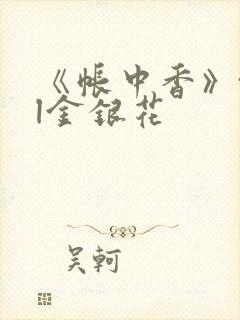 《帐中香》
|金银花
吴轲